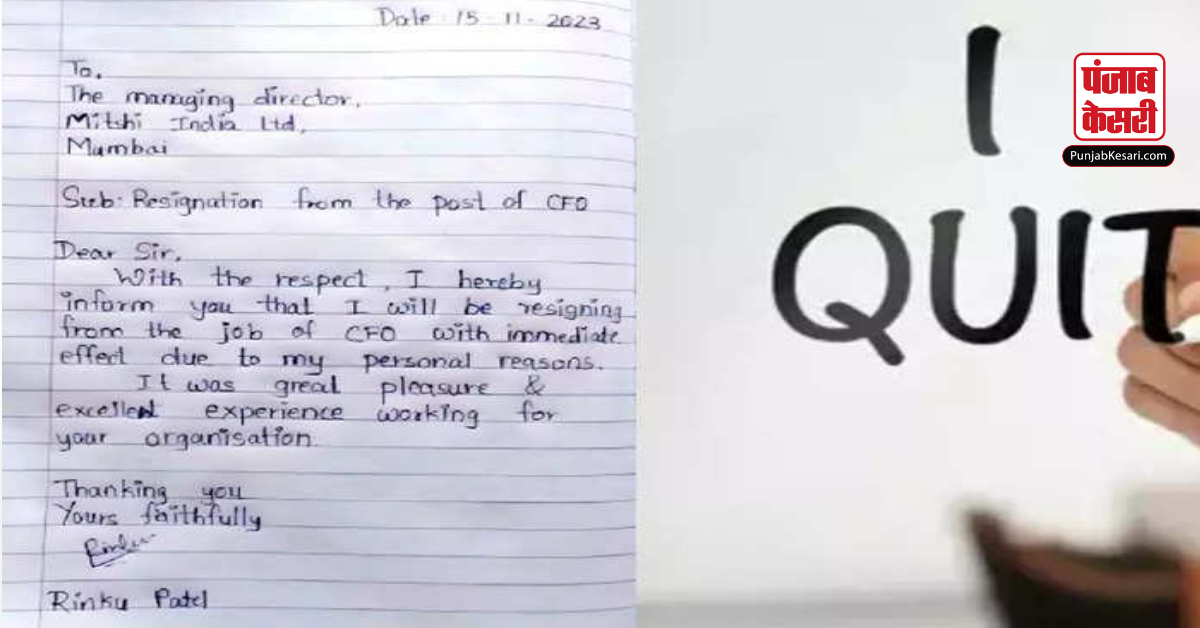 Date : 15 - 11 - 2023
To,
The managing director,
Mitshi India Ltd,
Mumbai
Sub: Resignation from the post of CFO
Dear Sir,
With the respect, I hereby
inform you that I will be resigning
from the job of CFO with immediate
effect due to my personal reasons.
It was great pleasure &
excellent experience working for
your organisation
Thanking you
Yours faithfully
Rinku
Rinku Patel
I
QUIT
पंजाब
केसरी
PunjabKesari.com